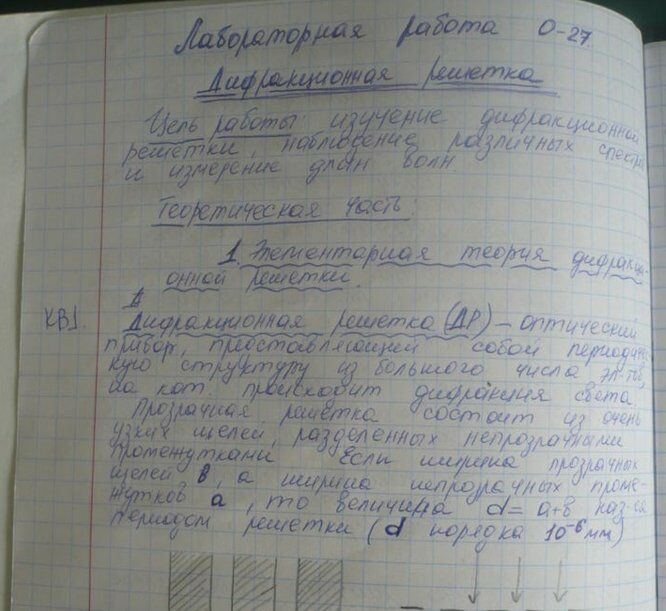 Лабораторная работа О-27.
Дифракционная решетка
Цель работы: изучение дифракционной
решетки, наблюдение различных спектр
и измерение длин волн.
Теоретическая часть:
1. Элементарная теория дифракци-
онной решетки.
КВ1.
Дифракционная решетка (ДР) – оптический
прибор, представляющий собой периодичес-
кую структуру из большого числа эл-тов,
на кот. происходит дифракция света.
Прозрачная решетка состоит из очень
узких щелей, разделенных непрозрачными
промежутками. Если ширина прозрачных
щелей в, а ширина непрозрачных проме-
жутков а, то величина d = a+в наз-ся
периодом решетки (d порядка 10⁻⁶ мм)